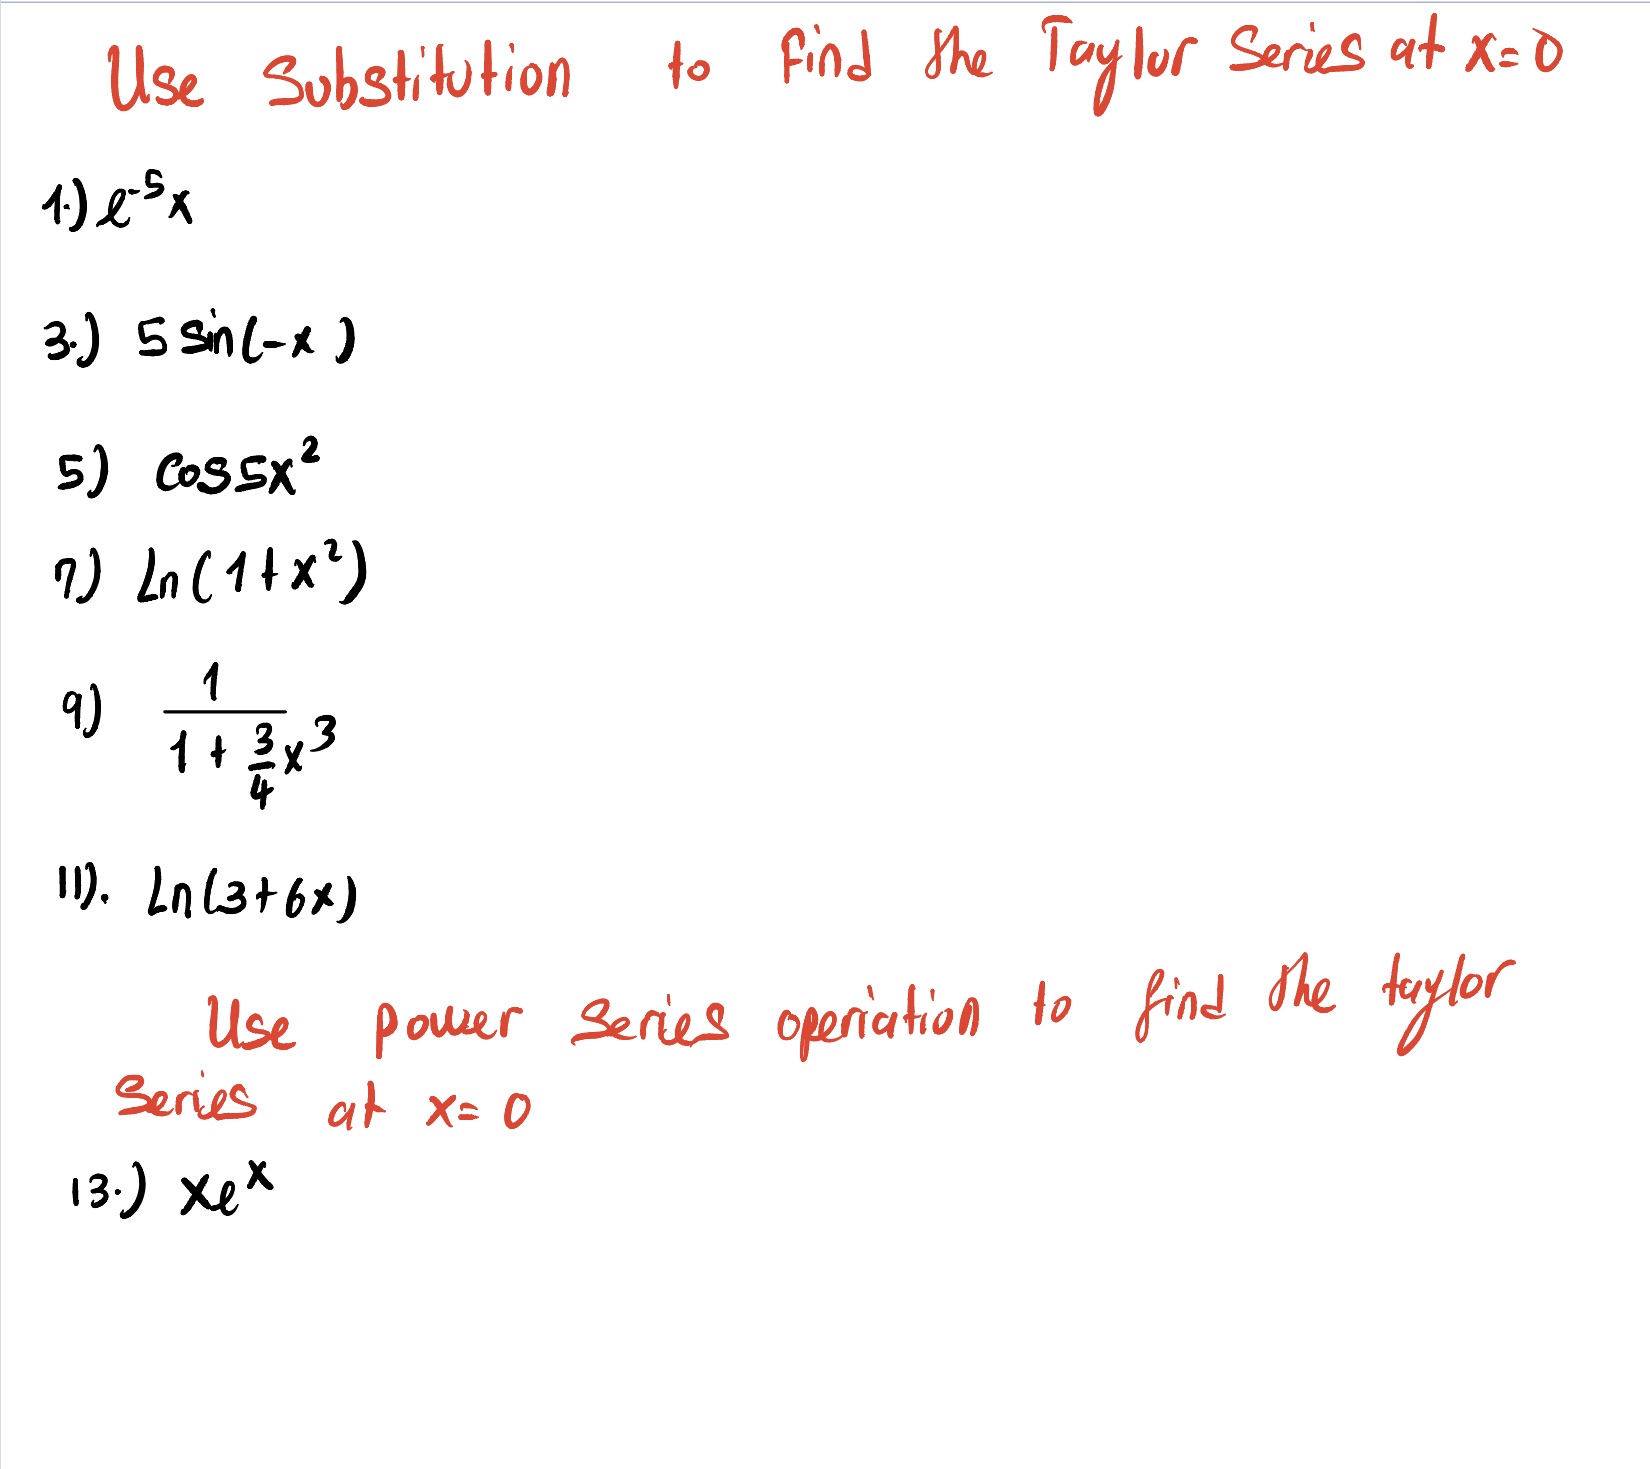 Use Substitution to find the Taylor Series at x=0
1.) e⁻⁵x
3.) 5 sin(-x)
5) cos5x²
7) Ln(1+x²)
9) 1
1 + 3/4 x³
11). Ln(3+6x)
Use power series operiation to find the taylor
Series at x=0
13.) xeˣ